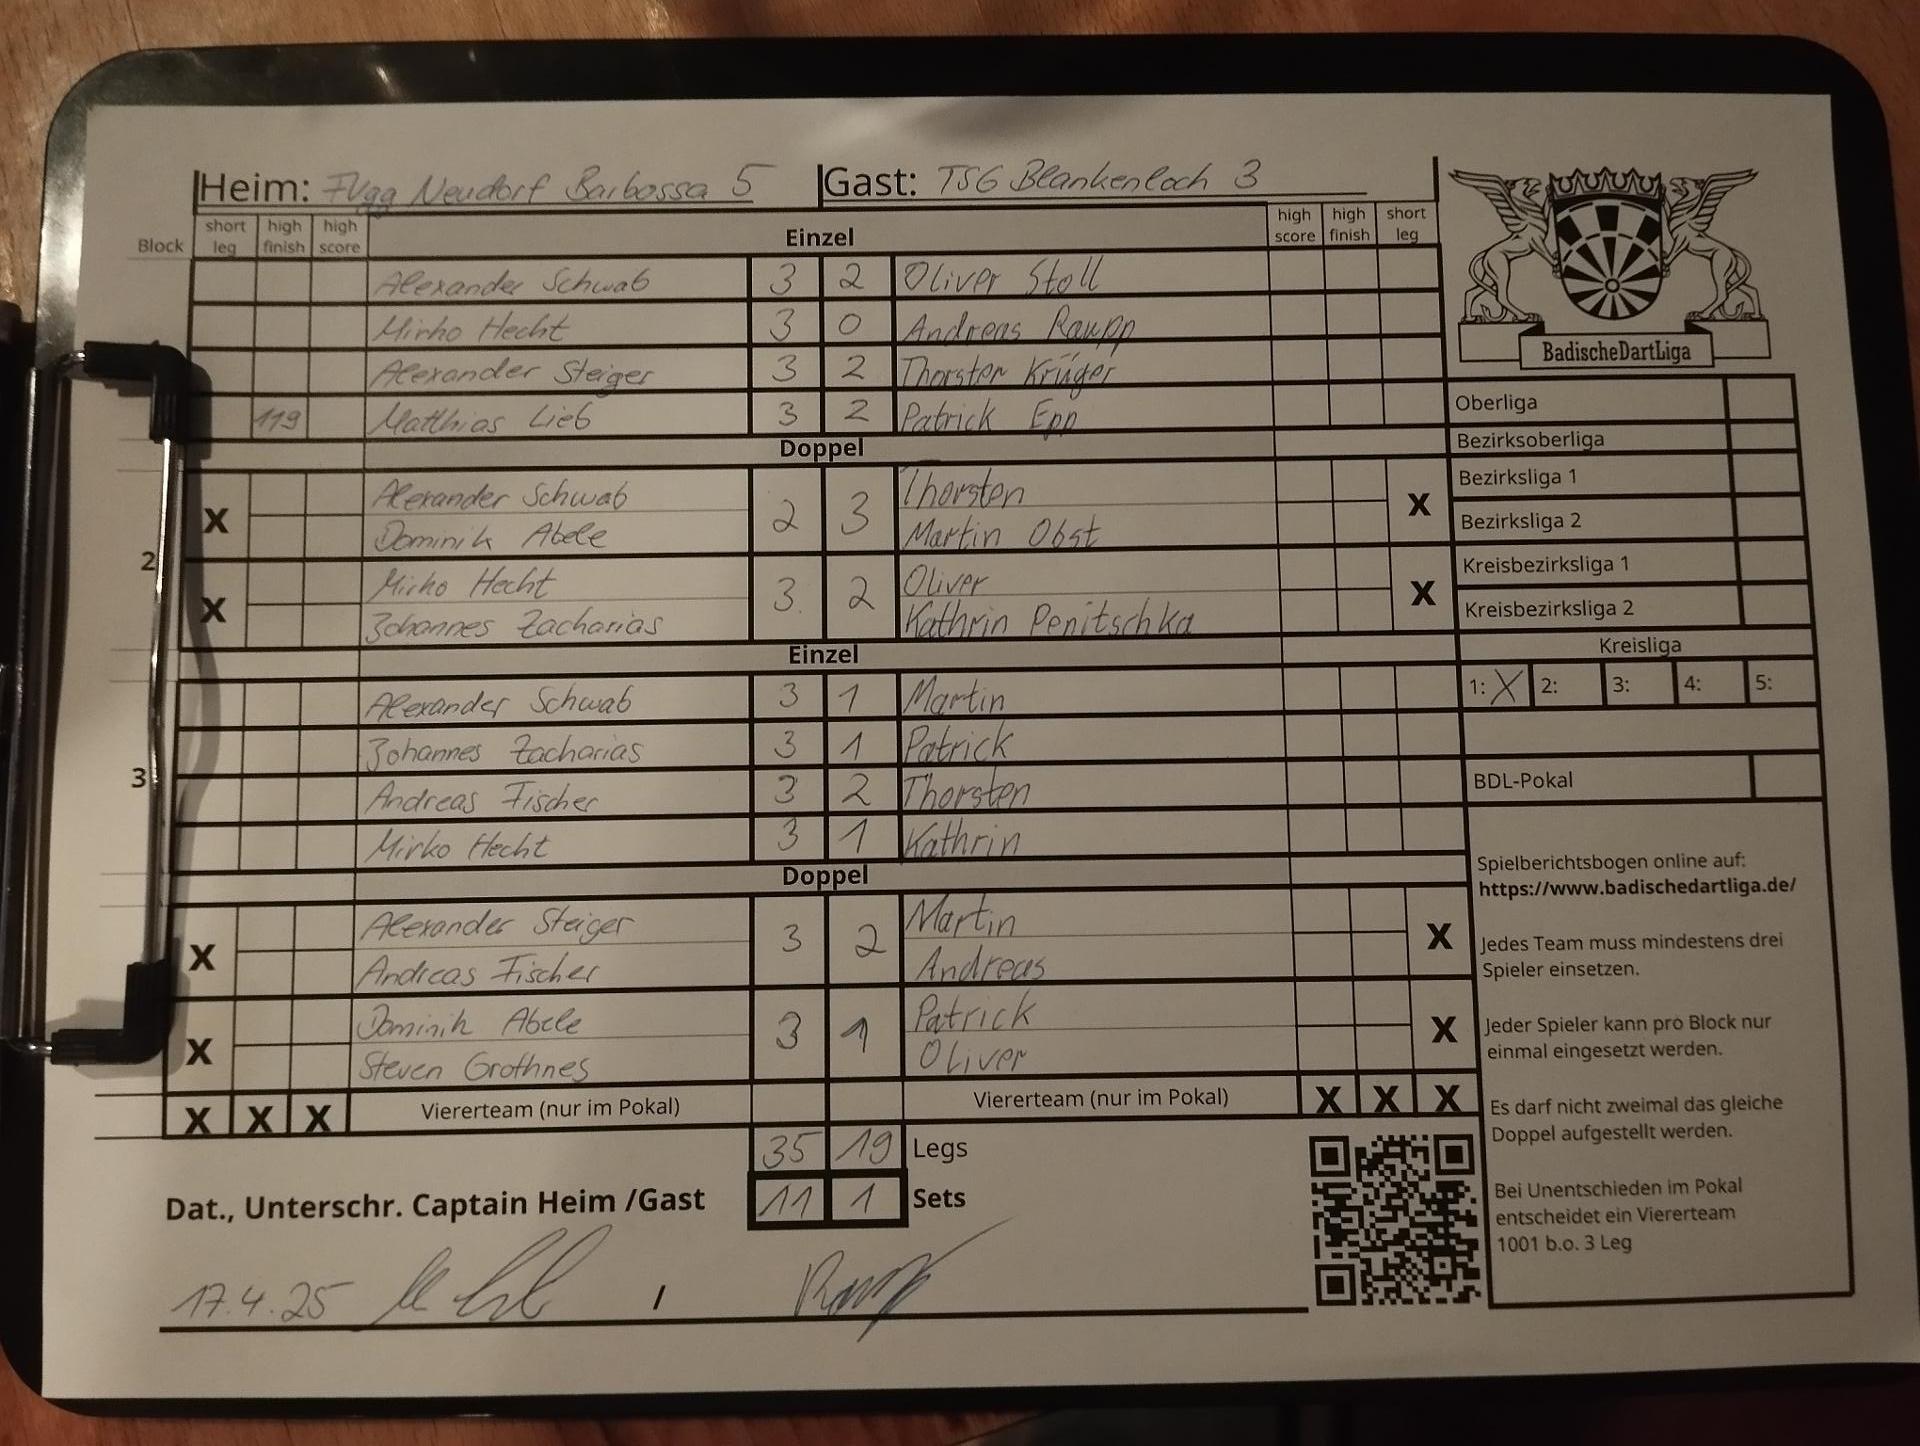 Heim: FVgg Neudorf Barbossa 5 Gast: TSG Blankenloch 3
Block short leg high finish high score Einzel high score high finish short leg
Alexander Schwab 3 2 Oliver Stoll
Mirko Hecht 3 0 Andreas Raupp
Alexander Steiger 3 2 Thorsten Krüger
119 Matthias Lieb 3 2 Patrick Epp
Doppel
X Alexander Schwab 2 3 Thorsten X
Dominik Abele Martin Obst
2
X Mirko Hecht 3 2 Oliver X
Johannes Zacharias Kathrin Penitschka
Einzel
Alexander Schwab 3 1 Martin
Johannes Zacharias 3 1 Patrick
3 Andreas Fischer 3 2 Thorsten
Mirko Hecht 3 1 Kathrin
Doppel
X Alexander Steiger 3 2 Martin X
Andreas Fischer Andreas
X Dominik Abele 3 1 Patrick X
Steven Grothnes Oliver
X X X Viererteam (nur im Pokal) Viererteam (nur im Pokal) X X X
35 19 Legs
Dat., Unterschr. Captain Heim /Gast 11 1 Sets
17.4.25 /
BadischeDartLiga
Oberliga
Bezirksoberliga
Bezirksliga 1
Bezirksliga 2
Kreisbezirksliga 1
Kreisbezirksliga 2
Kreisliga
1: X 2: 3: 4: 5:
BDL-Pokal
Spielberichtsbogen online auf:
https://www.badischedartliga.de/
Jedes Team muss mindestens drei
Spieler einsetzen.
Jeder Spieler kann pro Block nur
einmal eingesetzt werden.
Es darf nicht zweimal das gleiche
Doppel aufgestellt werden.
Bei Unentschieden im Pokal
entscheidet ein Viererteam
1001 b.o. 3 Leg